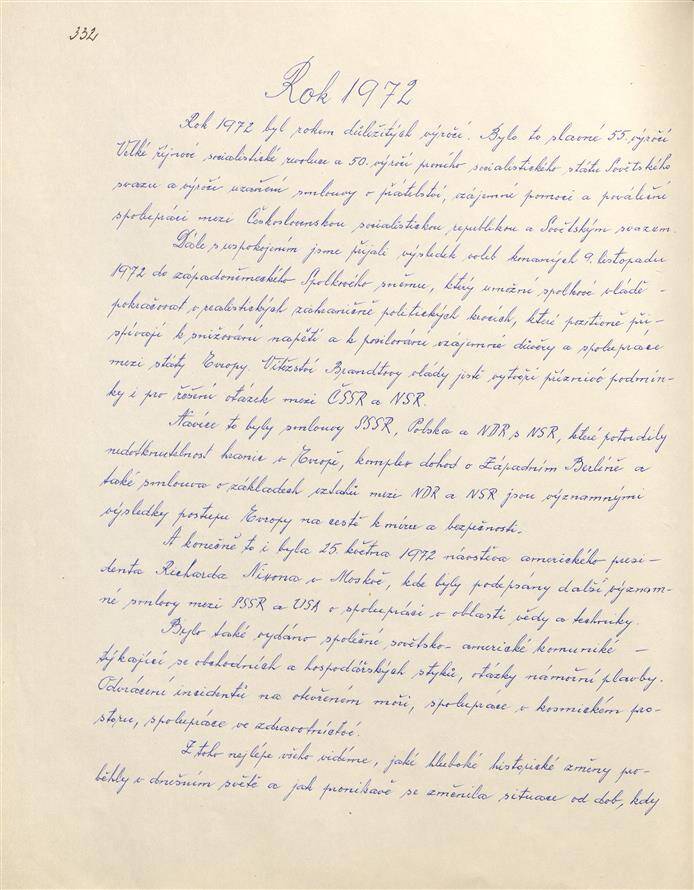 332
Rok 1972
Rok 1972 byl rokem důležitých výročí. Bylo to slavné 55. výročí
Velké říjnové socialistické revoluce a 50. výročí prvního socialistického státu Sovětského
svazu a výročí uzavření smlouvy o přátelství, vzájemné pomoci a poválečné
spolupráci mezi Československou socialistickou republikou a Sovětským svazem.
Dále s uspokojením jsme přijali výsledek voleb konaných 9. listopadu
1972 do západoněmeckého Spolkového sněmu, který umožní spolkové vládě -
pokračovat v realistických zahraničně politických krocích, které pozitivně při-
spívají k snižování napětí a k posilování vzájemné důvěry a spolupráce
mezi státy Evropy. Vítězství Brandtovy vlády jistě vytvoří příznivé podmín-
ky i pro řešení otázek mezi ČSSR a NSR.
Navíce to byly smlouvy SSSR, Polska a NDR s NSR, které potvrdily
nedotknutelnost hranic v Evropě, komplex dohod o Západním Berlíně a
také smlouva o základech vztahů mezi NDR a NSR jsou významnými
výsledky postupu Evropy na cestě k míru a bezpečnosti.
A konečně to i byla 25. května 1972 návštěva amerického presi-
denta Richarda Nixona v Moskvě, kde byly podepsany další význam-
né smlovy mezi SSSR a USA o spolupráci v oblasti vědy a techniky.
Bylo také vydáno společné sovětsko-americké komuniké -
týkající se obchodních a hospodářských styků, otázky námořní plavby.
Odvrácení incidentů na otevřeném moři, spolupráce v kosmickém pro-
storu, spolupráce ve zdravotnictví.
Z toho nejlépe všeho vidíme, jaké hluboké historické změny pro-
běhly v dnešním světě a jak pronikavě se změnila situace od dob, kdy